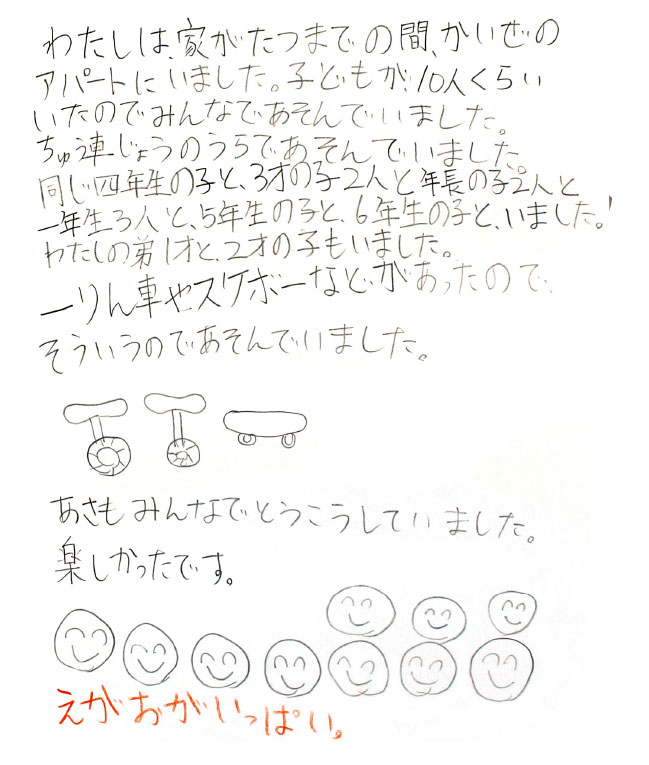 わたしは、家がたつまでの間、かいぜの
アパートにいました。子どもが、10人くらい
いたのでみんなであそんでいました。
ちゅう車じょうのうらであそんでいました。
同じ四年生の子と、3才の子2人と年長の子2人と
一年生3人と、5年生の子と、6年生の子と、いました!
わたしの弟1才と、2才の子もいました。
一りん車やスケボーなどがあったので、
そういうのであそんでいました。
あさもみんなでとうこうしていました。
楽しかったです。
えがおがいっぱい。